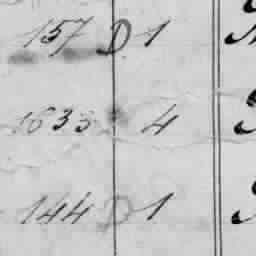 157 D. 1
1633 4
144 D 1